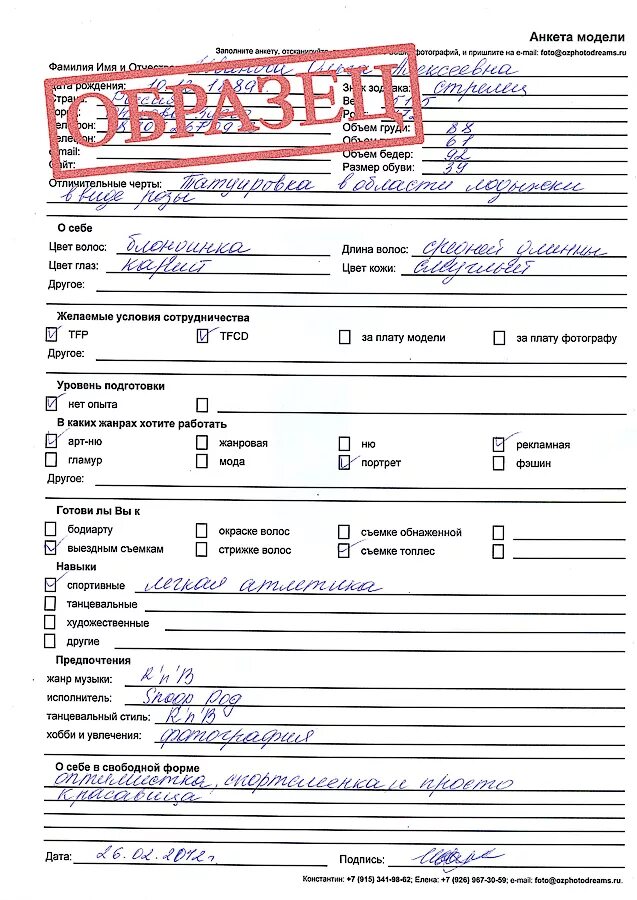 Анкета модели
Заполните анкету, отсканируйте фотографий, и пришлите на e-mail: foto@ozphotodreams.ru
Фамилия Имя и Отчество: Ольга Алексеевна
Дата рождения: Знак зодиака: Стрелец
Страна: Россия
Объем груди: 88
61
Объем бедер: 92
Сайт: Размер обуви: 39
ОБРАЗЕЦ
Отличительные черты: Татуировка в области лодыжки
в виде розы
О себе
Цвет волос: блондинка Длина волос: средней длинны
Цвет глаз: карий Цвет кожи: смуглый
Другое:
Желаемые условия сотрудничества
TFP TFCD за плату модели за плату фотографу
Другое:
Уровень подготовки
нет опыта
В каких жанрах хотите работать
арт-ню жанровая ню рекламная
гламур мода портрет фэшин
Другое:
Готови лы Вы к
бодиарту окраске волос съемке обнаженной
выездным съемкам стрижке волос съемке топлес
Навыки
спортивные легкая атлетика
танцевальные
художественные
другие
Предпочтения
жанр музыки: R'n'B
исполнитель: Snoop Dog
танцевальный стиль: R'n'B
хобби и увлечения: фотография
О себе в свободной форме
оптимистка, спортсменка и просто
красавица
Дата: 26.02.2012г. Подпись:
Константин: +7 (915) 341-98-62; Елена: +7 (926) 967-30-59; e-mail: foto@ozphotodreams.ru.